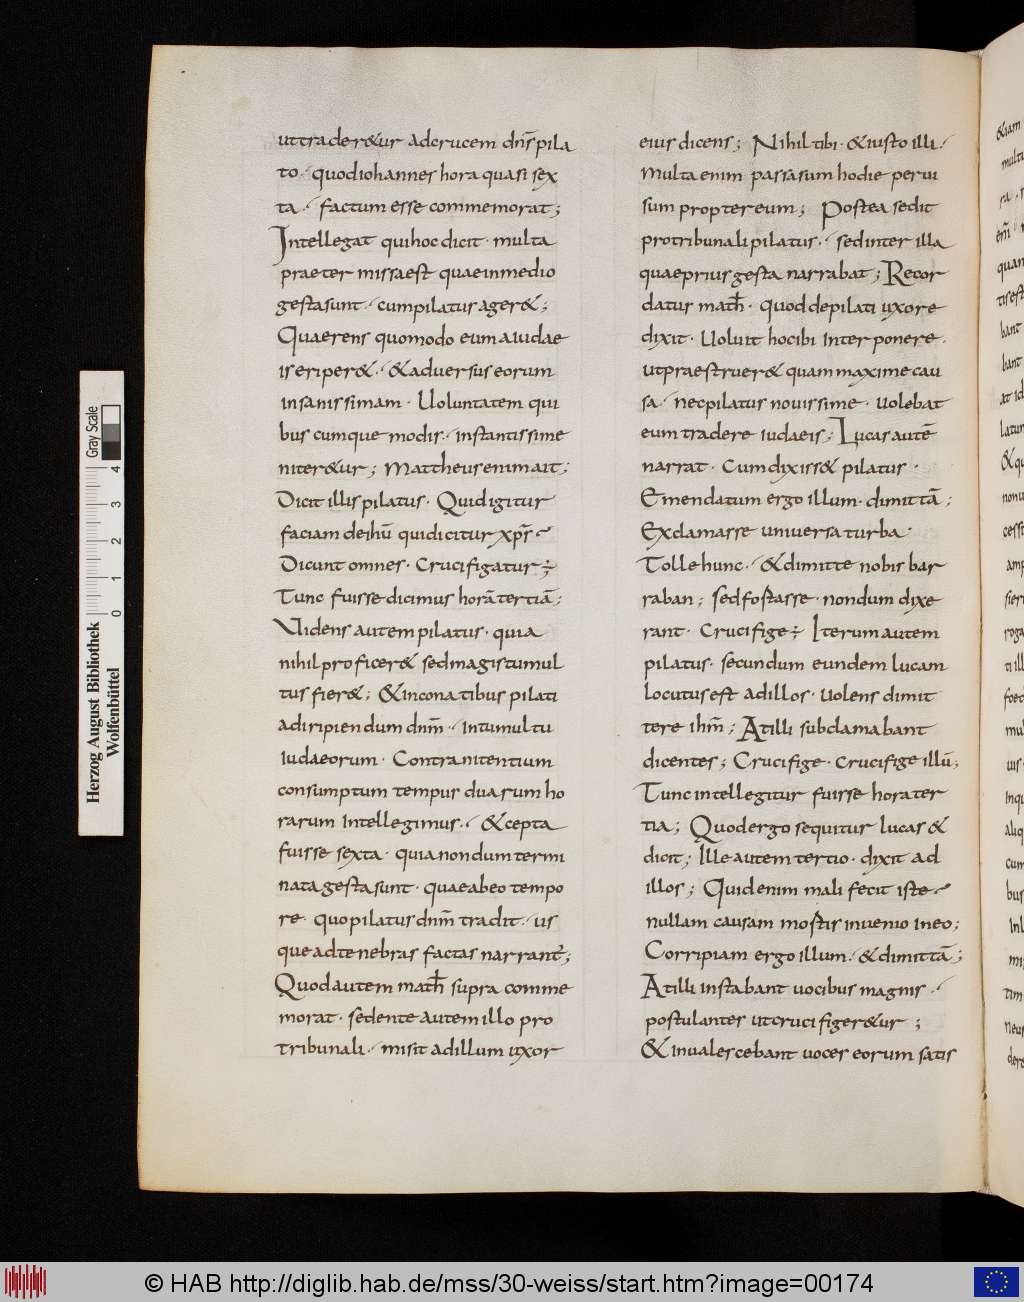 uttrader&ur adcrucem dn̄s pila
to· quodiohannes hora quasi sex
ta· factum esse commemorat;
Intellegat quihoc dicit· multa
praeter missaest quaeinmedio
gestasunt· cumpilatus ager&;
Quaerens quomodo eum aiudae
is eriper&· &adversus eorum
insanissimam· Uoluntatem qui
buscumque modis· instantissime
niter&ur; Mattheus enim ait;
Dicit illis pilatus· Quid igitur
faciam deihū quidicitur xp̄s·
Dicunt omnes· Crucifigatur;
Tunc fuisse dicimus horā tertiā;
Uidens autem pilatus· quia
nihil proficer& sed magis tumul
tus fier&; &inconatibus pilati
adiripiendum dnm̄· Intumultu
iudaeorum· Contranitentium
consumptum tempus duarum ho
rarum intellegimus· &cepta
fuisse sexta· quia nondum termi
nata gesta sunt· quae ab eo tempo
re· quo pilatus dnm̄ tradit· us
que adtenebras factas narrant̄;
Quod autem math̄ supra comme
morat· sedente autem illo pro
tribunali· misit ad illum uxor
eius dicens; Nihil tibi· &iusto illi·
Multa enim passa sum hodie per ui
sum propter eum; Postea sedit
protribunali pilatus· sed inter illa
quae prius gesta narrabat; Recor
datus math̄· quod de pilati uxore
dixit· Uoluit hoc ibi inter ponere·
utpraestruer& quam maxime cau
sa· nec pilatus nouissime· uolebat
eum tradere iudaeis; Lucas autē
narrat· Cum dixiss& pilatus·
Emendatum ergo illum· dimittā;
Exclamasse universa turba·
Tolle hunc· &dimitte nobis bar
raban; sed fostasse· nondum dixe
rant· Crucifige; Iterum autem
pilatus· secundum eundem lucam
locutus est ad illos· uolens dimit
tere ihm̄; Atilli subclamabant
dicentes; Crucifige· crucifige illū;
Tunc intellegitur fuisse hora ter
tia; Quod ergo sequitur lucas &
dicit; Ille autem tertio· dixit ad
illos; Quid enim mali fecit iste·
nullam causam mostis inuenio in eo;
Corripiam ergo illum· &dimittā;
Atilli instabant uocibus magnis·
postulantes ut crucifiger&ur;
&inualescebant uoces eorum satis
Herzog August Bibliothek
Wolfenbüttel
Gray Scale
0 1 2 3 4
© HAB http://diglib.hab.de/mss/30-weiss/start.htm?image=00174